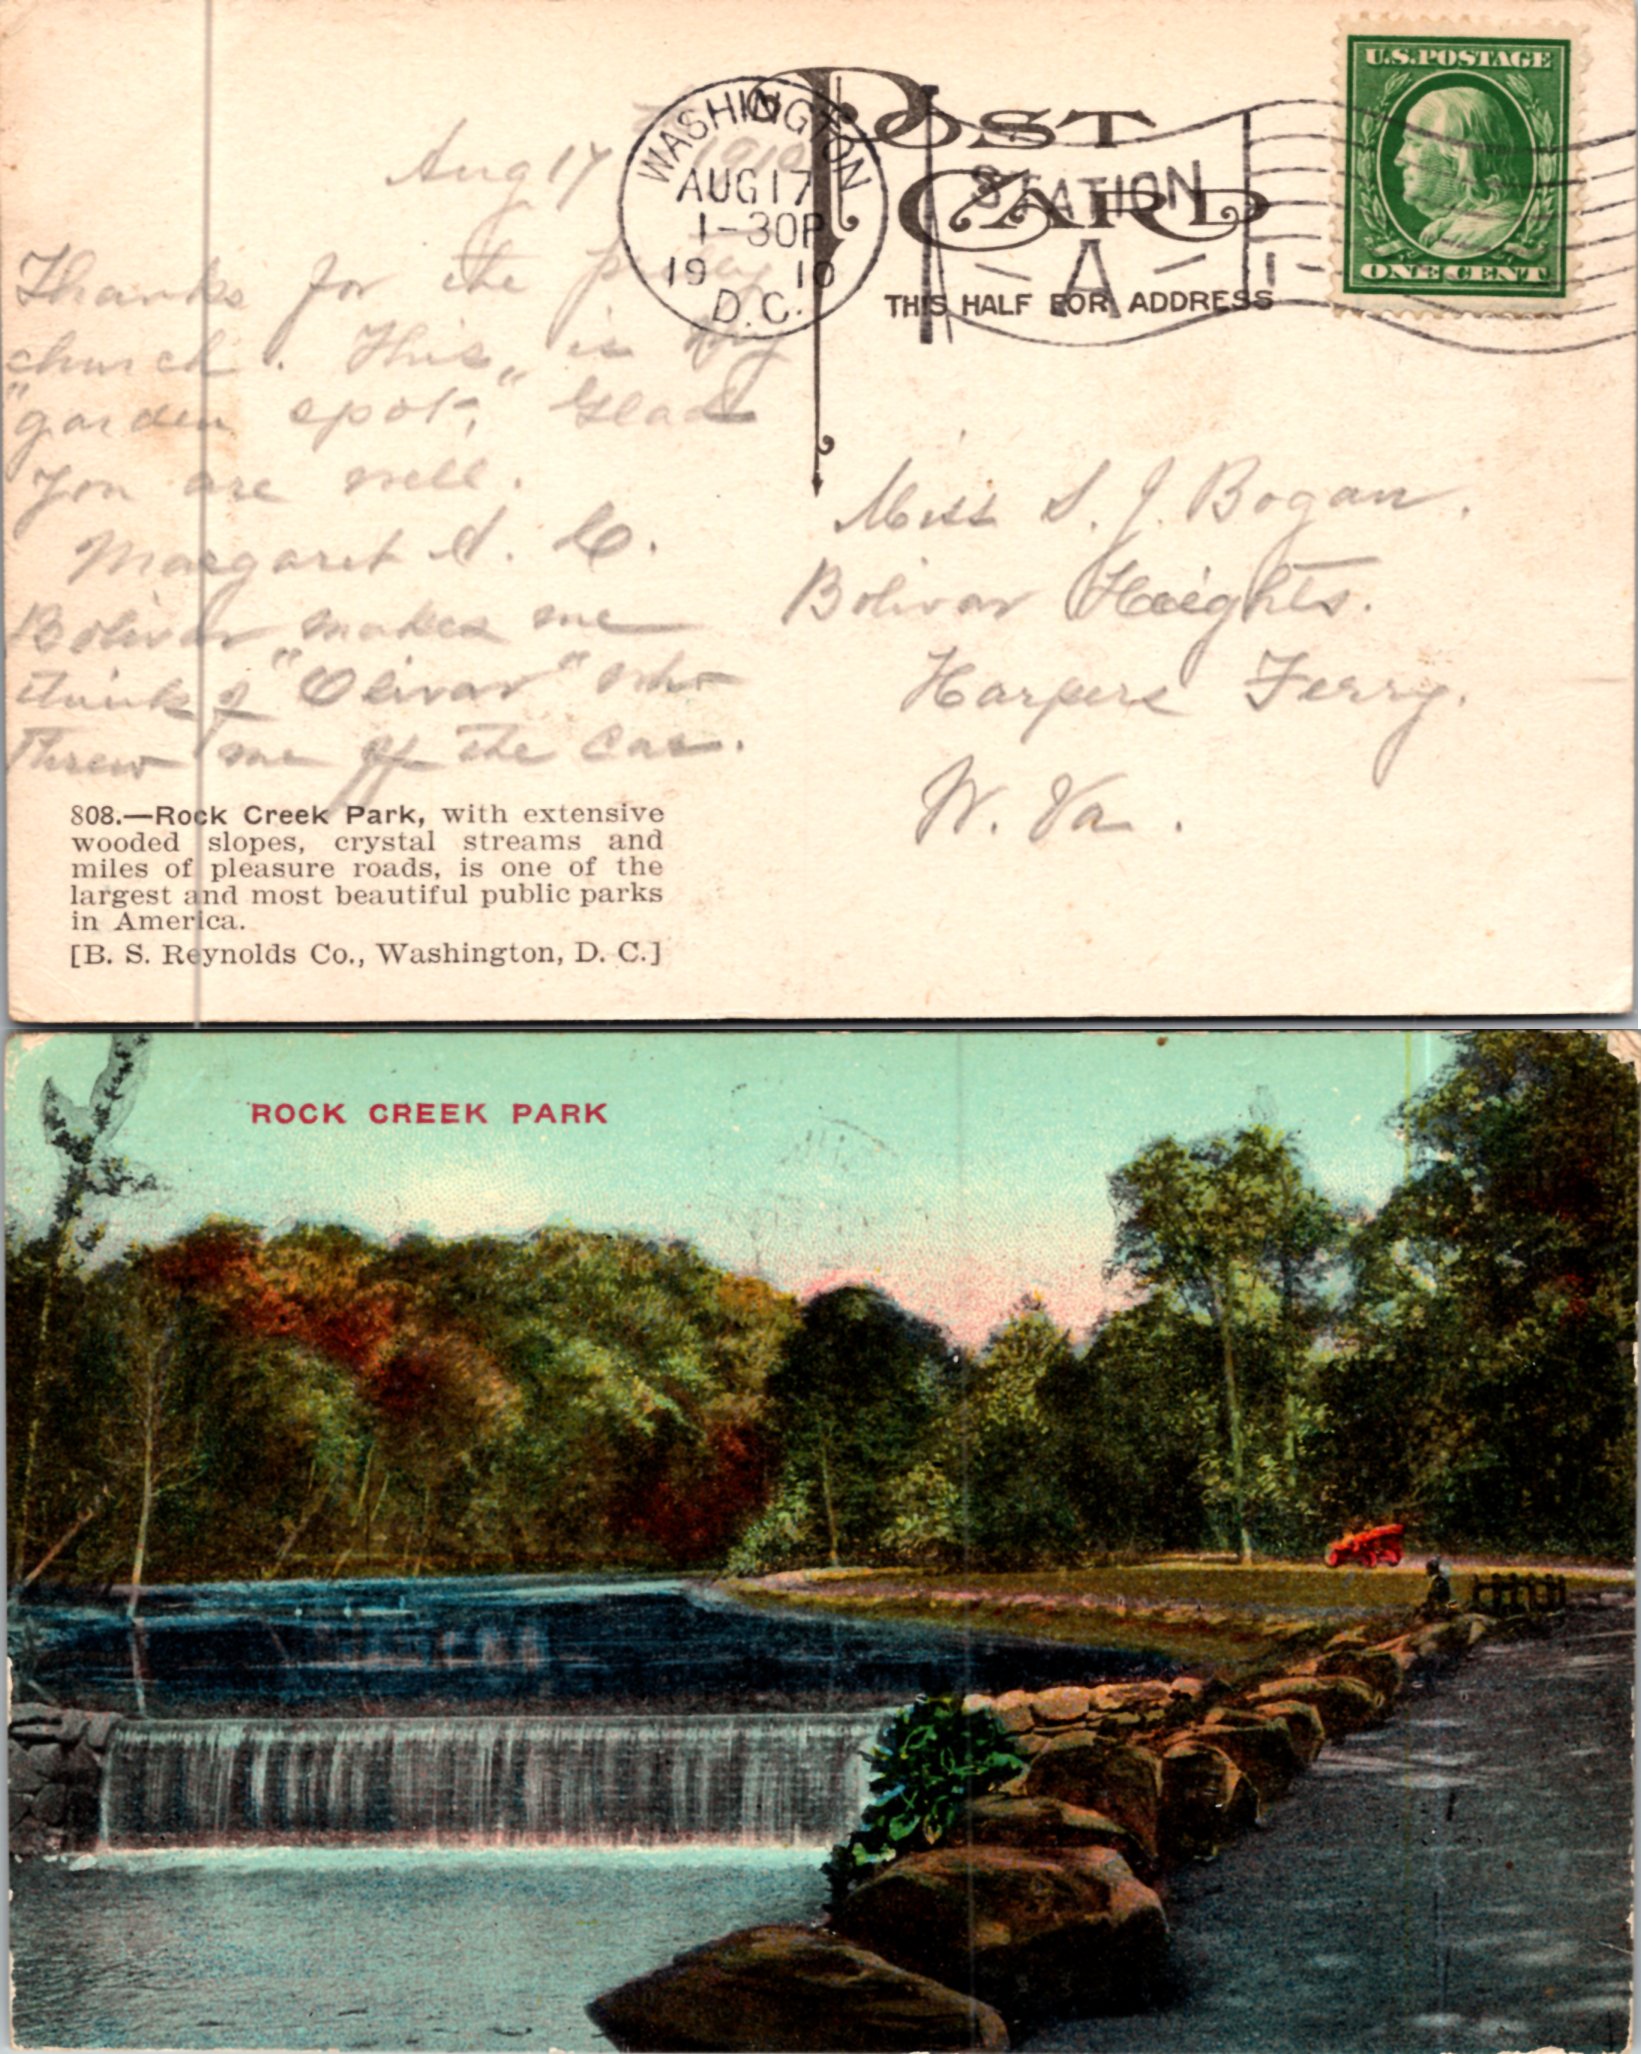 POST CARD
THIS HALF FOR ADDRESS
WASHINGTON
AUG 17
1-30P
1910
D.C.
STATION
A
1
U.S. POSTAGE
ONE CENT
Aug 17 1910
Thanks for the pretty
church. This is my
"garden spot," Glad
you are well.
Margaret A. C.
Bolivar makes me
think of "Olivar" who
threw me off the car.
Miss S. J. Bogan.
Bolivar Heights.
Harpers Ferry.
W. Va.
808.—Rock Creek Park, with extensive
wooded slopes, crystal streams and
miles of pleasure roads, is one of the
largest and most beautiful public parks
in America.
[B. S. Reynolds Co., Washington, D. C.]
ROCK CREEK PARK